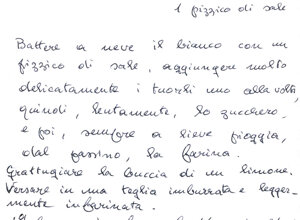 1 pizzico di sale
Battere a neve il bianco con un
pizzico di sale, aggiungere molto
delicatamente i tuorli uno alla volta
quindi, lentamente, lo zucchero,
e poi, sempre a lieve pioggia,
dal passino, la farina.
Grattugiare la buccia di un limone.
Versare in una teglia imburrata e legger-
mente infarinata.